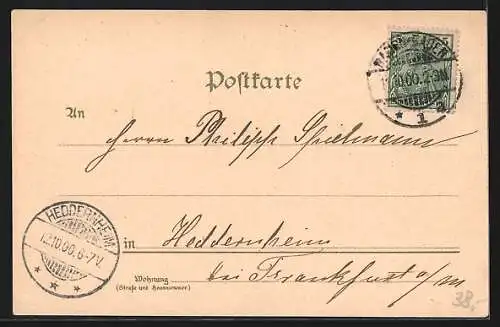 Postkarte
An
Herrn Philipp Spielmann
HEDDERNHEIM
12.10.00.6-7V.
* * *
in Heddernheim
bei Frankfurt a/M
Wohnung
(Straße und Hausnummer)
10.00.2-3N.
* 1 a
38.-